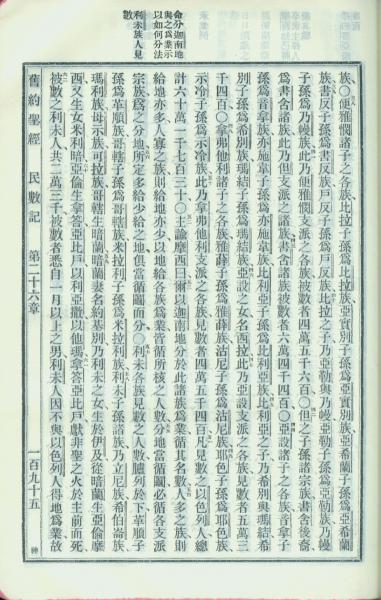 命分迦南地
與之為業示
以如何分法
利未族人見
數
族○便雅憫諸子之各族比拉子孫為比拉族亞實別子孫為亞實別族亞希蘭子孫為亞希蘭
族書反子孫為書反族戶反子孫為戶反族比拉之子乃亞勒與乃幔亞勒子孫為亞勒族乃幔
子孫為乃幔族此乃便雅憫支派之各族被數者四萬五千六百○但之子孫諸宗族書含後裔
為書含諸族此乃但支派之諸族書含諸族被數者六萬四千四百○亞設諸子之各族音拿子
孫為音拿族亦施韋子孫為亦施韋族比利亞子孫為比利亞族比利亞之子乃希別與瑪結希
別子孫為希別族瑪結子孫為瑪結族亞設之女名西拉此乃亞設支派之各族見數者五萬三
千四百○拿弗他利諸子之各族雅薛子孫為雅薛族沽尼子孫為沽尼族耶色子孫為耶色族
示冷子孫為示冷族此乃拿弗他利支派之各族見數者四萬五千四百凡見數之以色列人總
計六十萬一千七百三十○主諭摩西曰爾以迦南地分於此諸族為業循其名數人多之族則
給地亦多人寡之族則給地亦少以地給各族為業皆循所核之人數分地當循鬮必循各支派
宗族為之分地所定多給少給之地俱當循鬮而分○利未各族見數之人數臚列於下革順子
孫為革順族哥轄子孫為哥轄族米拉利子孫為米拉利族利未子孫諸族乃立尼族希伯崙族
瑪利族母示族可拉族哥轄生暗蘭暗蘭妻名約基別乃利未之女生於伊及從暗蘭生亞倫摩
西又生女米利暗亞倫生拿答亞比戶以利亞撒以他瑪拿答亞比戶獻非聖之火於主前而死
被數之利未人共二萬三千被數者悉自一月以上之男利未人因不與以色列人得地為業故
舊約聖經 民數記 第二十六章 一百九十五